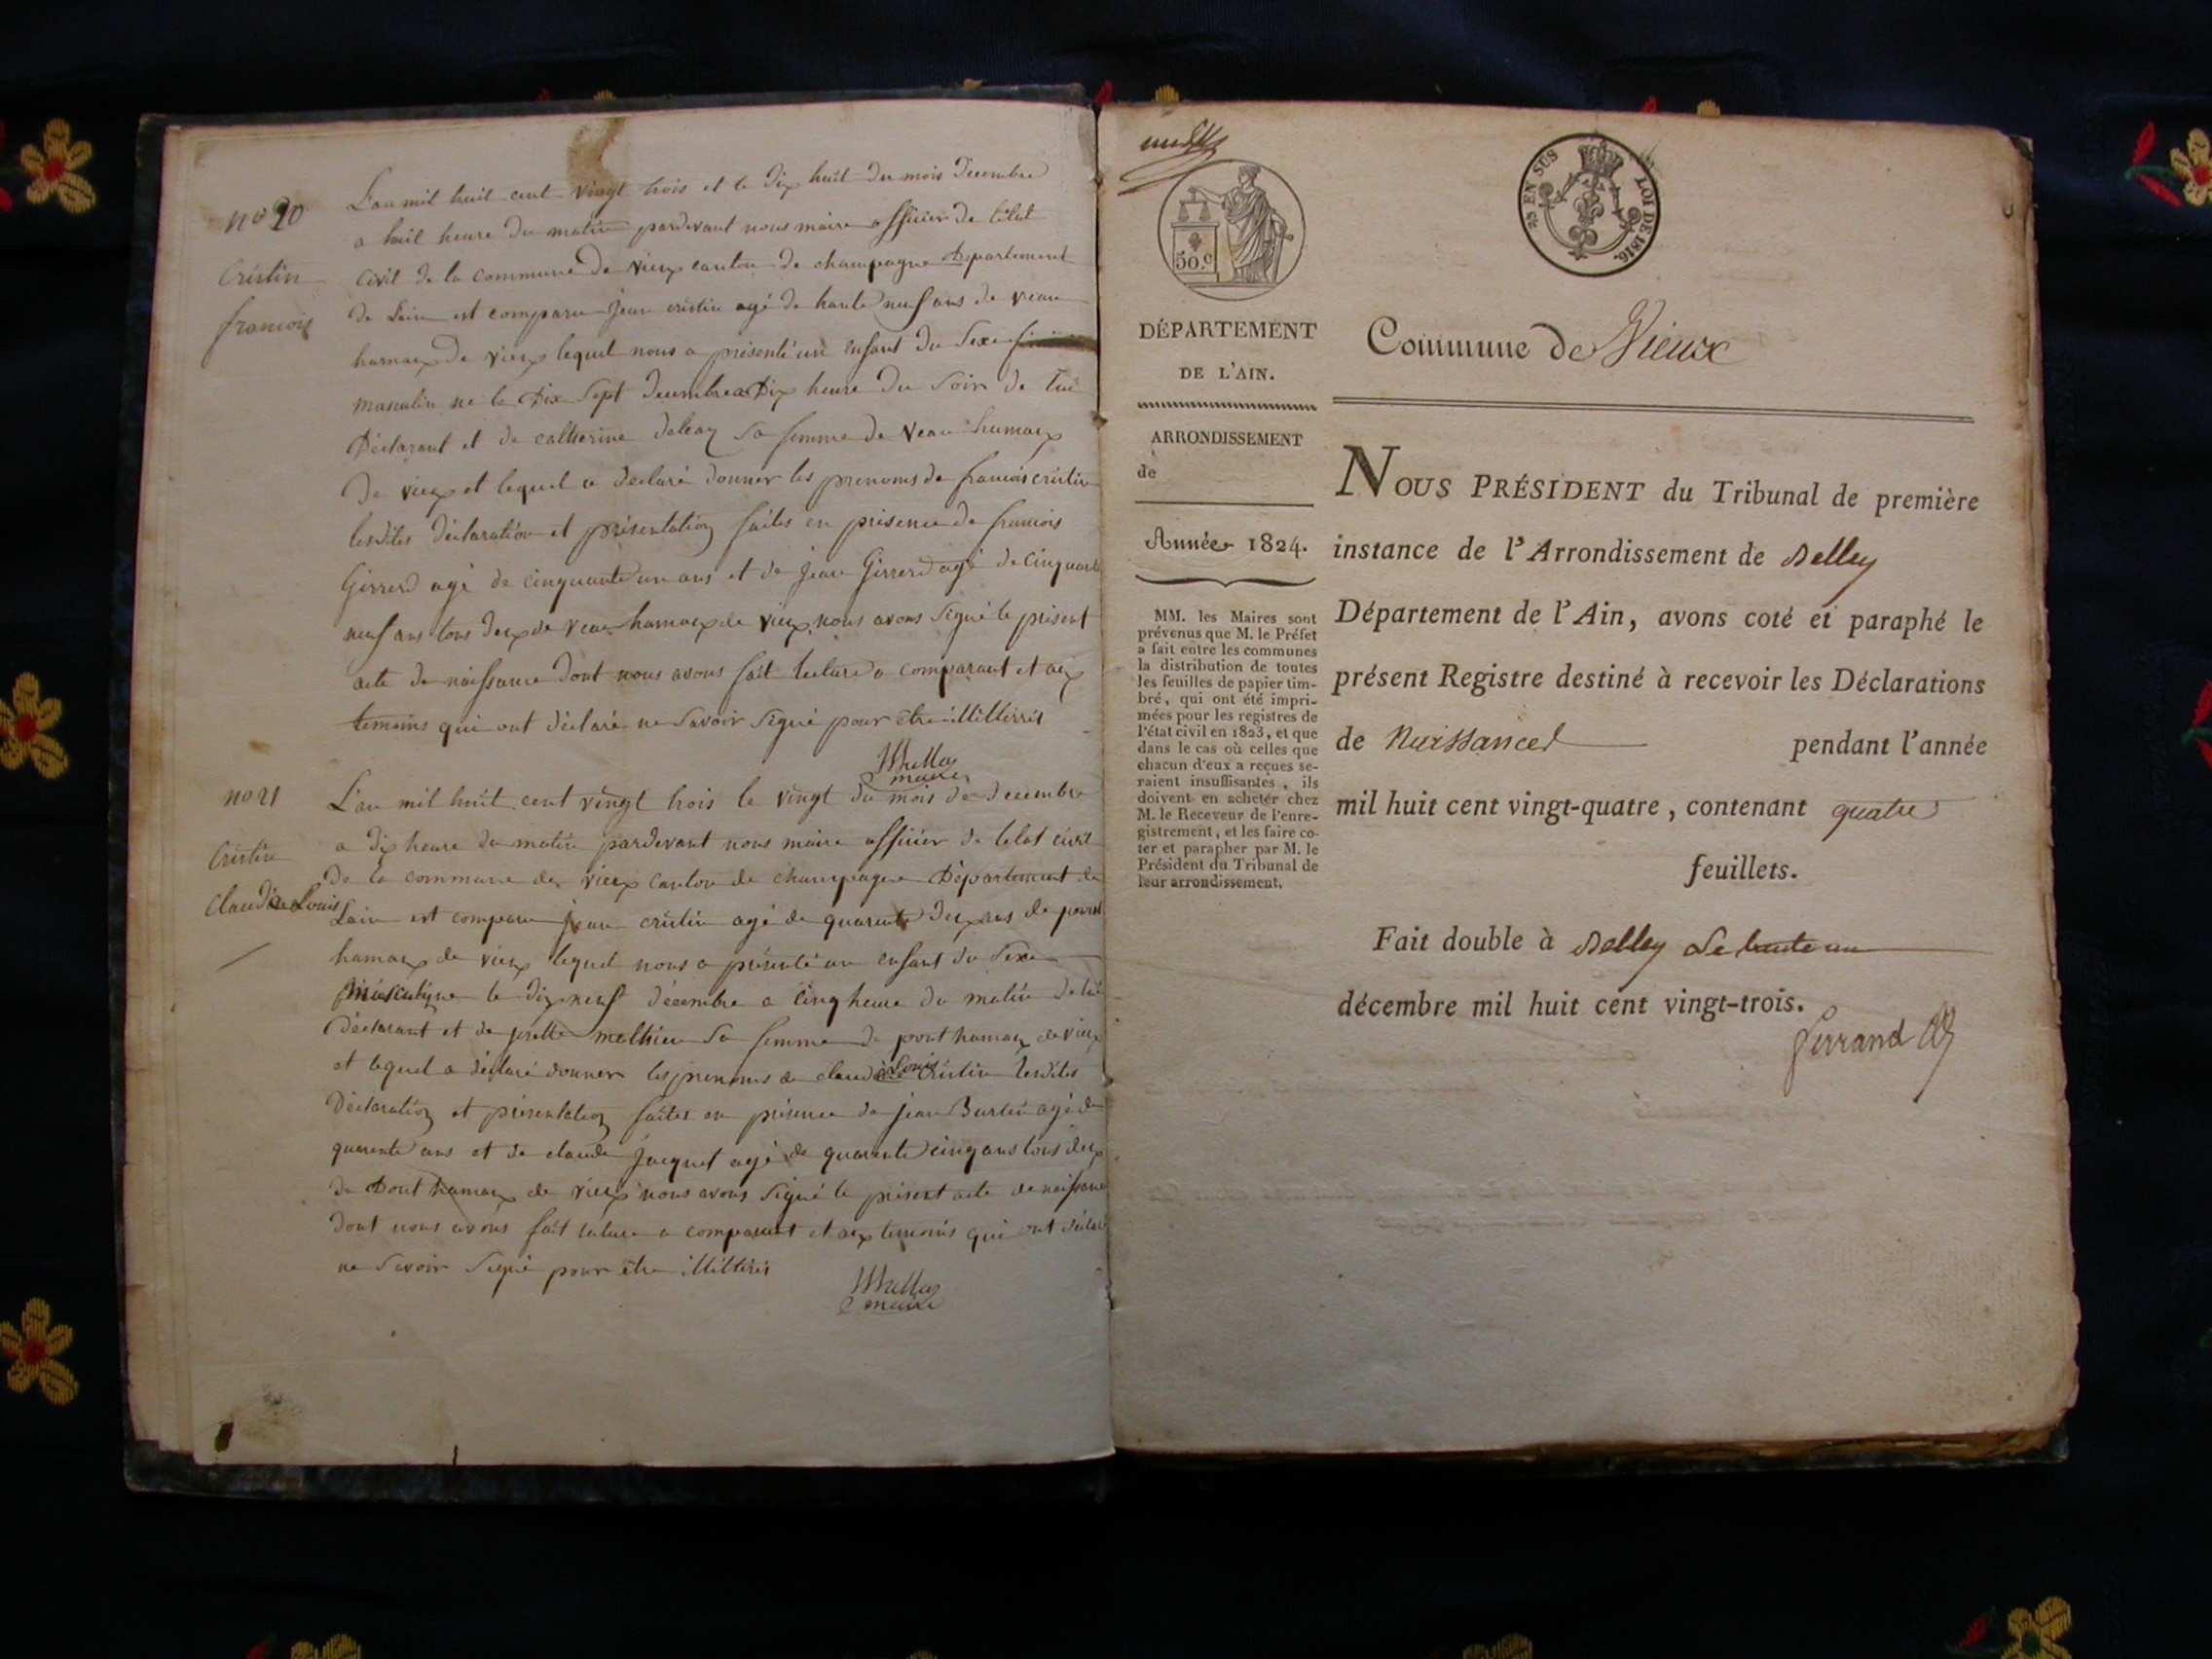 no 20
Cristin
francois
L'an mil huit cent vingt trois et le Dix huit du mois Decembre
a huit heure Du matin pardevant nous maire officier De l'état
Civil de la commune De vieux canton De champagne Département
De Lain est comparu Jean cristin agé De trante neuf ans de veau
hamaux De vieux lequel nous a présenté un enfant Du Sexe
masculin ne le Dix Sept Decembre a Dix heure Du Soir De lui
Déclarant et De catherine sa femme De veau hamaux
De vieux et lequel a declaré donner les prenoms De francois cristin
lesdites déclaration et présentation faites en présence De francois
Girrerd agé de cinquante un ans et de Jean Girrerd agé De Cinquante
neuf ans tous Deux de veau hamaux de vieux nous avons Signé le présent
acte De naissance Dont nous avons fait lecture a comparant et aux
temoins qui ont déclaré ne Savoir Signé pour être illitterés
maire
no 21
Cristin
Claude Louis
L'an mil huit cent vingt trois le vingt du mois De decembre
a Dix heure du matin pardevant nous maire officier De letat civil
De la commune de vieux canton de champagne Département de
Lain est comparu jean cristin agé de quarante Deux ans de pont
hamaux de vieux lequel nous a présenté un enfant du Sexe
masculin ne le Dix neuf décembre a cinq heure du matin De lui
Déclarant et De mathieu Sa femme De pont hamaux de vieux
et lequel a déclaré donner les prenoms de claude Louis Cristin lesdites
Déclaration et présentation faites en présence De jean Burlet agé de
quarante ans et De claude Jacquet agé de quarante cinq ans tous deux
De Pont hamaux de vieux nous avons Signé le présent acte de naissance
Dont nous avons fait lecture a comparant et aux temoins qui ont déclaré
ne Savoir Signé pour être illitterés
maire
25 EN SUS LOI DE 1816.
50.c
DÉPARTEMENT
DE L'AIN.
ARRONDISSEMENT
de
Année 1824.
MM. les Maires sont
prévenus que M. le Préfet
a fait entre les communes
la distribution de toutes
les feuilles de papier tim-
bré, qui ont été impri-
mées pour les registres de
l'état civil en 1823, et que
dans le cas où celles que
chacun d'eux a reçues se-
raient insuffisantes, ils
doivent en acheter chez
M. le Receveur de l'enre-
gistrement, et les faire co-
ter et parapher par M. le
Président du Tribunal de
leur arrondissement.
Commune de Vieux
NOUS PRÉSIDENT du Tribunal de première
instance de l'Arrondissement de Belley
Département de l'Ain, avons coté et paraphé le
présent Registre destiné à recevoir les Déclarations
de Naissances pendant l'année
mil huit cent vingt-quatre, contenant quatre
feuillets.
Fait double à Belley le trente un
décembre mil huit cent vingt-trois.